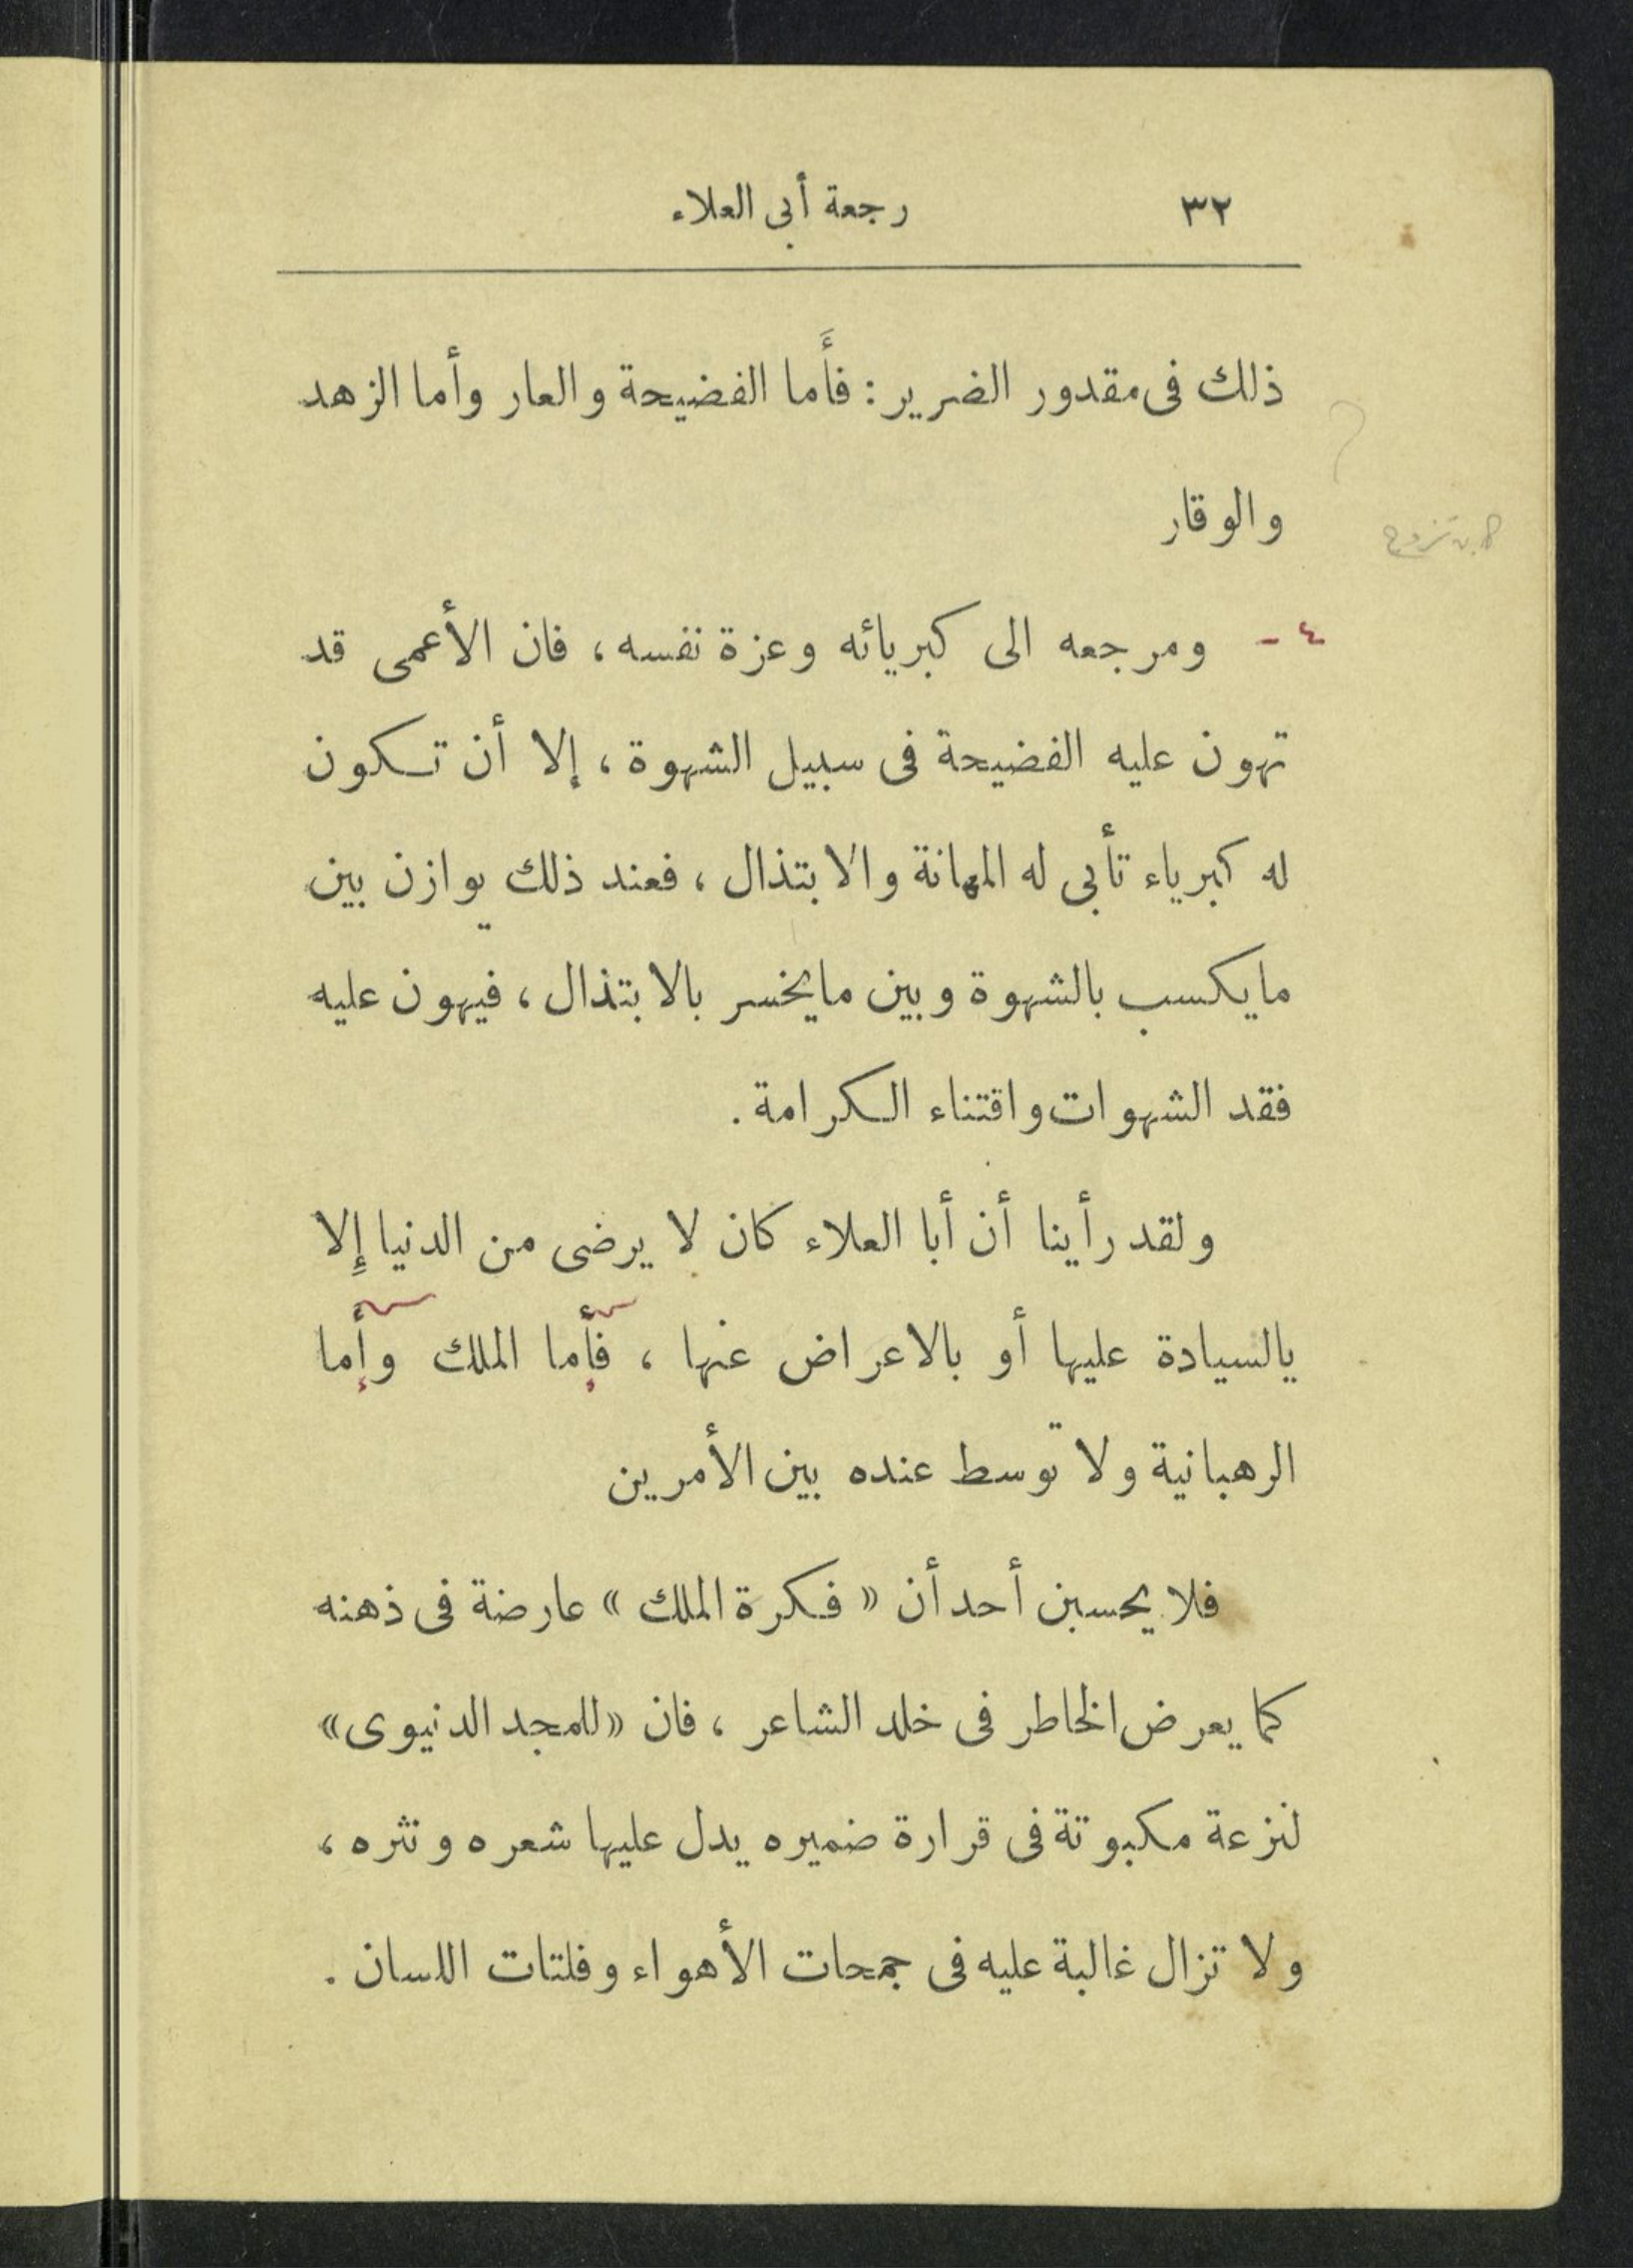 ٣٢ رجعة أبي العلاء
ذلك فى مقدور الضرير : فأَما الفضيحة والعار وأما الزهد
والوقار
٤ - ومرجعه الى كبريائه وعزة نفسه ، فان الأعمى قد
تهون عليه الفضيحة فى سبيل الشهوة ، إلا أن تكون
له كبرياء تأبى له المهانة والابتذال ، فعند ذلك يوازن بين
مايكسب بالشهوة وبين مايخسر بالابتذال ، فيهون عليه
فقد الشهوات واقتناء الكرامة .
ولقد رأينا أن أبا العلاء كان لا يرضى من الدنيا إِلا
بالسيادة عليها أو بالاعراض عنها ، فإما الملك وإما
الرهبانية ولا توسط عنده بين الأمرين
فلا يحسبن أحد أن « فكرة الملك » عارضة فى ذهنه
كما يعرض الخاطر فى خلد الشاعر ، فان « للمجد الدنيوى »
لنزعة مكبوتة فى قرارة ضميره يدل عليها شعره ونثره ،
ولا تزال غالبة عليه فى جمحات الأهواء وفلتات اللسان .